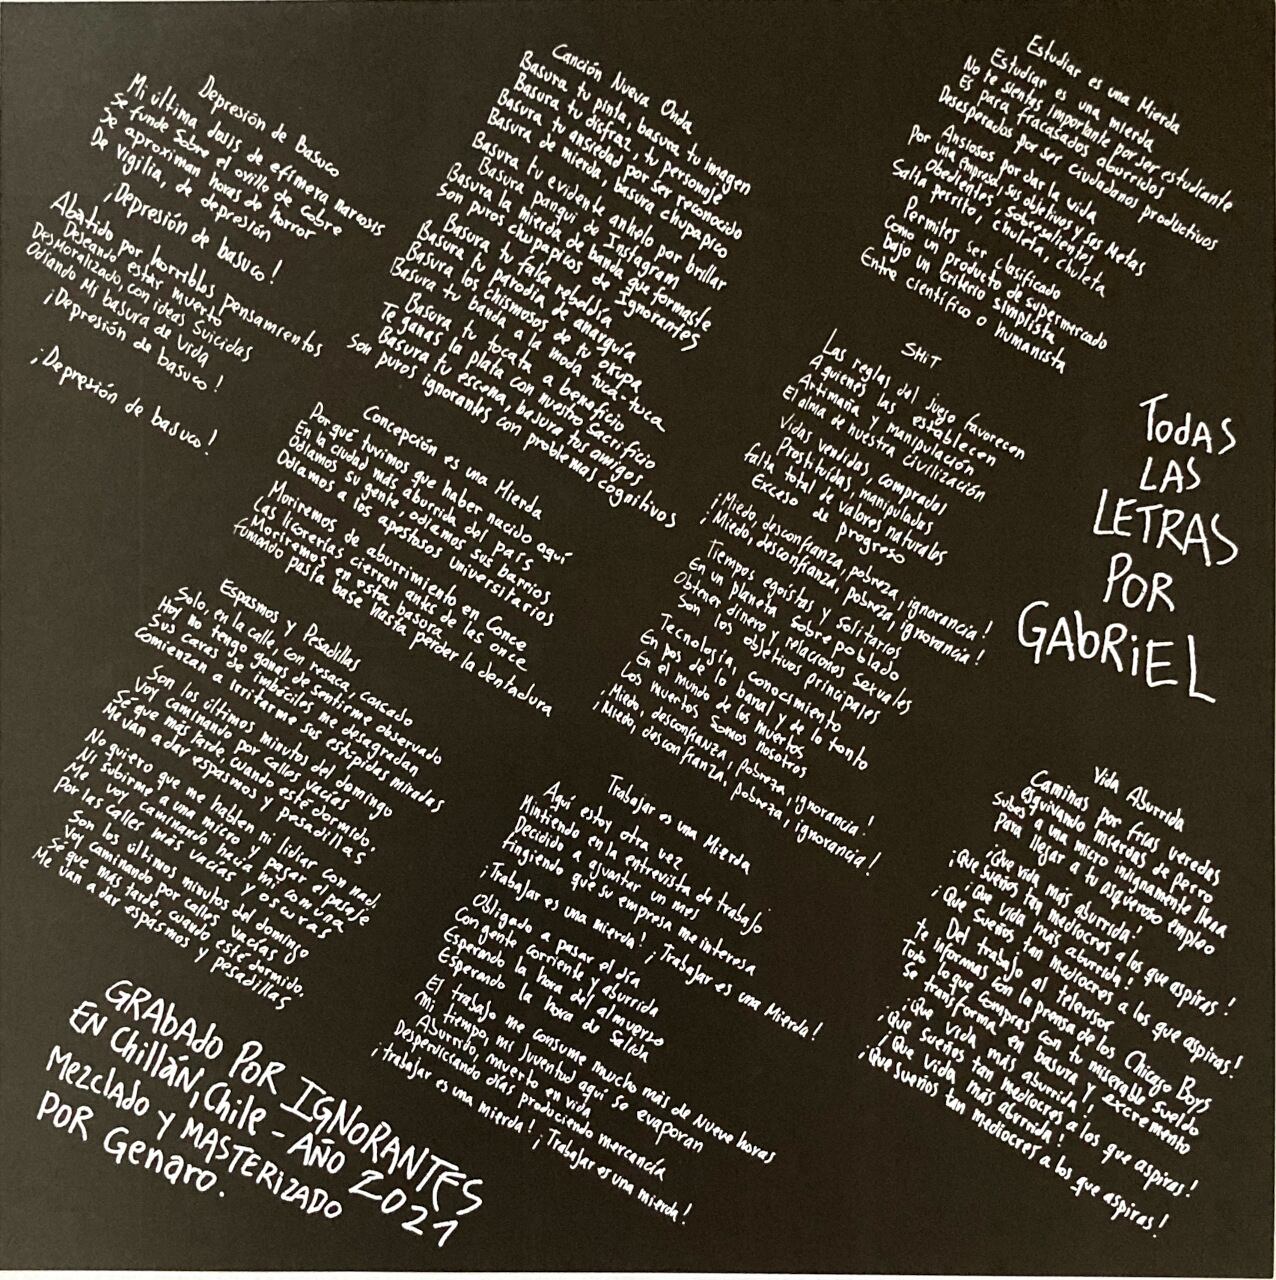 Depresión de Basuco
Mi última dosis de efímera narcosis
Se funde sobre el ovillo de cobre
Se aproximan horas de horror
De vigilia, de depresión
¡Depresión de basuco!
Abatido por horribles pensamientos
Deseando estar muerto
Desmoralizado, con ideas suicidas
Odiando Mi basura de vida
¡Depresión de basuco!
¡Depresión de basuco!
Canción Nueva Onda
Basura tu pinta, basura tu imagen
Basura tu disfraz, tu personaje
Basura tu ansiedad por ser reconocido
Basura de mierda, basura chupapico
Basura tu evidente anhelo por brillar
Basura panqui de Instagram
Basura la mierda de banda que formaste
Son puros chupapicos de Ignorantes
Basura tu falsa rebeldía
Basura tu parodia de anarquía
Basura los chismosos de tu okupa
Basura tu banda a la moda tuca-tuca
Basura tu tocata a beneficio
Te ganas la plata con nuestro sacrificio
Basura tu escena, basura tus amigos
Son puros ignorantes con problemas cognitivos
Estudiar es una Mierda
Estudiar es una mierda
No te sientas importante por ser estudiante
Es para fracasados aburridos
Desesperados por ser ciudadanos productivos
Ansiosos por dar la vida
Por una empresa, sus objetivos y sus Metas
Obedientes, sobresalientes
Salta perrito, chuleta, chuleta
Permites ser clasificado
Como un producto de supermercado
bajo un criterio simplista
Entre científico o humanista
Concepción es una Mierda
Porqué tuvimos que haber nacido aquí
En la ciudad más aburrida del país
Odiamos su gente, odiamos sus barrios
Odiamos a los apestosos universitarios
Moriremos de aburrimiento en Conce
Las licorerías cierran antes de las once
Moriremos en esta basura
fumando pasta base hasta perder la dentadura
SHiT
Las reglas del juego favorecen
A quienes las establecen
Artimaña y manipulación
El alma de nuestra civilización
Vidas vendidas, compradas
Prostituidas, manipuladas
falta total de valores naturales
Exceso de progreso
¡Miedo, desconfianza, pobreza, ignorancia!
¡Miedo, desconfianza, pobreza, ignorancia!
Tiempos egoístas y solitarios
En un planeta sobre poblado
Obtener dinero y relaciones sexuales
Son los objetivos principales
Tecnología, conocimiento
En pos de lo banal y de lo tonto
En el mundo de los muertos
Los muertos somos nosotros
¡Miedo, desconfianza, pobreza, ignorancia!
¡Miedo, desconfianza, pobreza, ignorancia!
TODAS
LAS
LETRAS
POR
GAbRiEL
Espasmos y Pesadillas
Solo, en la calle, con resaca, cansado
Hoy no tengo ganas de sentirme observado
Sus caras de imbéciles me desagradan
Comienzan a irritarme sus estúpidas miradas
Son los últimos minutos del domingo
Voy caminando por calles vacías
Sé que más tarde, cuando esté dormido,
Me van a dar espasmos y pesadillas
No quiero que me hablen ni lidiar con nadie
Ni subirme a una micro y pagar el pasaje
Me voy caminando hacia mi comuna
Por las calles más vacías y oscuras
Son los últimos minutos del domingo
Voy caminando por calles vacías
Sé que más tarde, cuando esté dormido,
Me van a dar espasmos y pesadillas
Trabajar es una Mierda
Aquí estoy otra vez
Mintiendo en la entrevista de trabajo
Decidido a aguantar un mes
Fingiendo que su empresa me interesa
¡Trabajar es una mierda! ¡Trabajar es una Mierda!
Obligado a pasar el día
Con gente corriente y aburrida
Esperando la hora del almuerzo
Esperando la hora de salida
El trabajo me consume mucho más de nueve horas
Mi tiempo, mi juventud aquí se evaporan
Aburrido, muerto en vida
Desperdiciando días produciendo mercancía
¡trabajar es una mierda! ¡Trabajar es una mierda!
Vida Aburrida
Caminas por frías veredas
esquivando mierdas de perro
Subes a una micro indignamente llena
Para llegar a tu asqueroso empleo
¡Que vida más aburrida!
¡Que sueños tan mediocres a los que aspiras!
¡Que vida más aburrida!
¡Que sueños tan mediocres a los que aspiras!
Del trabajo al televisor
te informas con la prensa de los Chicago Boys
Todo lo que compras con tu miserable sueldo
Se transforma en basura y excremento
¡Que vida más aburrida!
¡Que sueños tan mediocres a los que aspiras!
¡Que vida más aburrida!
¡Que sueños tan mediocres a los que aspiras!
GRAbADO POR IGNORANTES
EN Chillán, Chile - Año 2021
Mezclado y MASTERIZADO
POR Genaro.